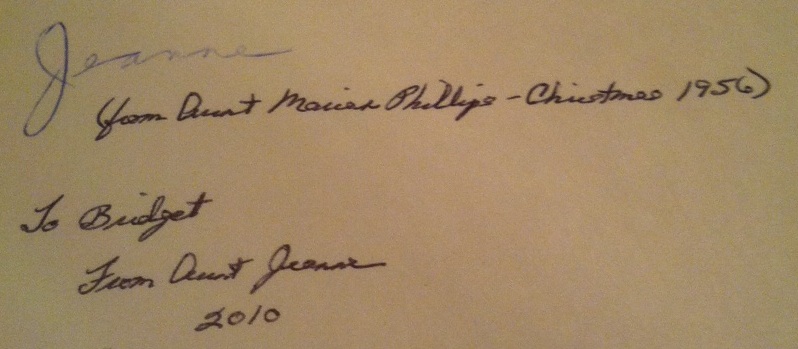 Jeanne
(from Aunt Marian Phillips - Christmas 1956)
To Bridget
From Aunt Jeanne
2010